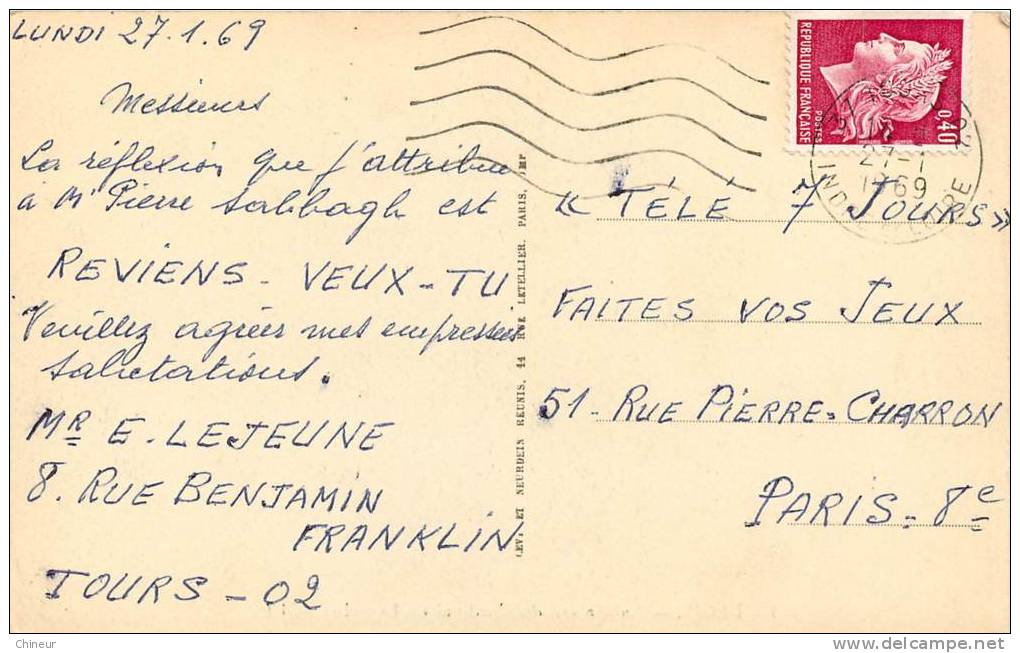 LUNDI 27.1.69
Messieurs
La réflexion que j'attribue
à Mr Pierre Sabbagh est
REVIENS - VEUX - TU
Veuillez agréer mes empressées
salutations.
MR E. LEJEUNE
8. RUE BENJAMIN
FRANKLIN
TOURS - 02
LEVY ET NEURDEIN REUNIS, 44 RUE LETELLIER, PARIS, IMP
REPUBLIQUE FRANÇAISE
POSTES
0,40
27-1
1969
INDRE ET LOIRE
« TÉLÉ 7 JOURS »
FAITES VOS JEUX
51 - RUE PIERRE - CHARRON
PARIS - 8e
Chineur
www.delcampe.net